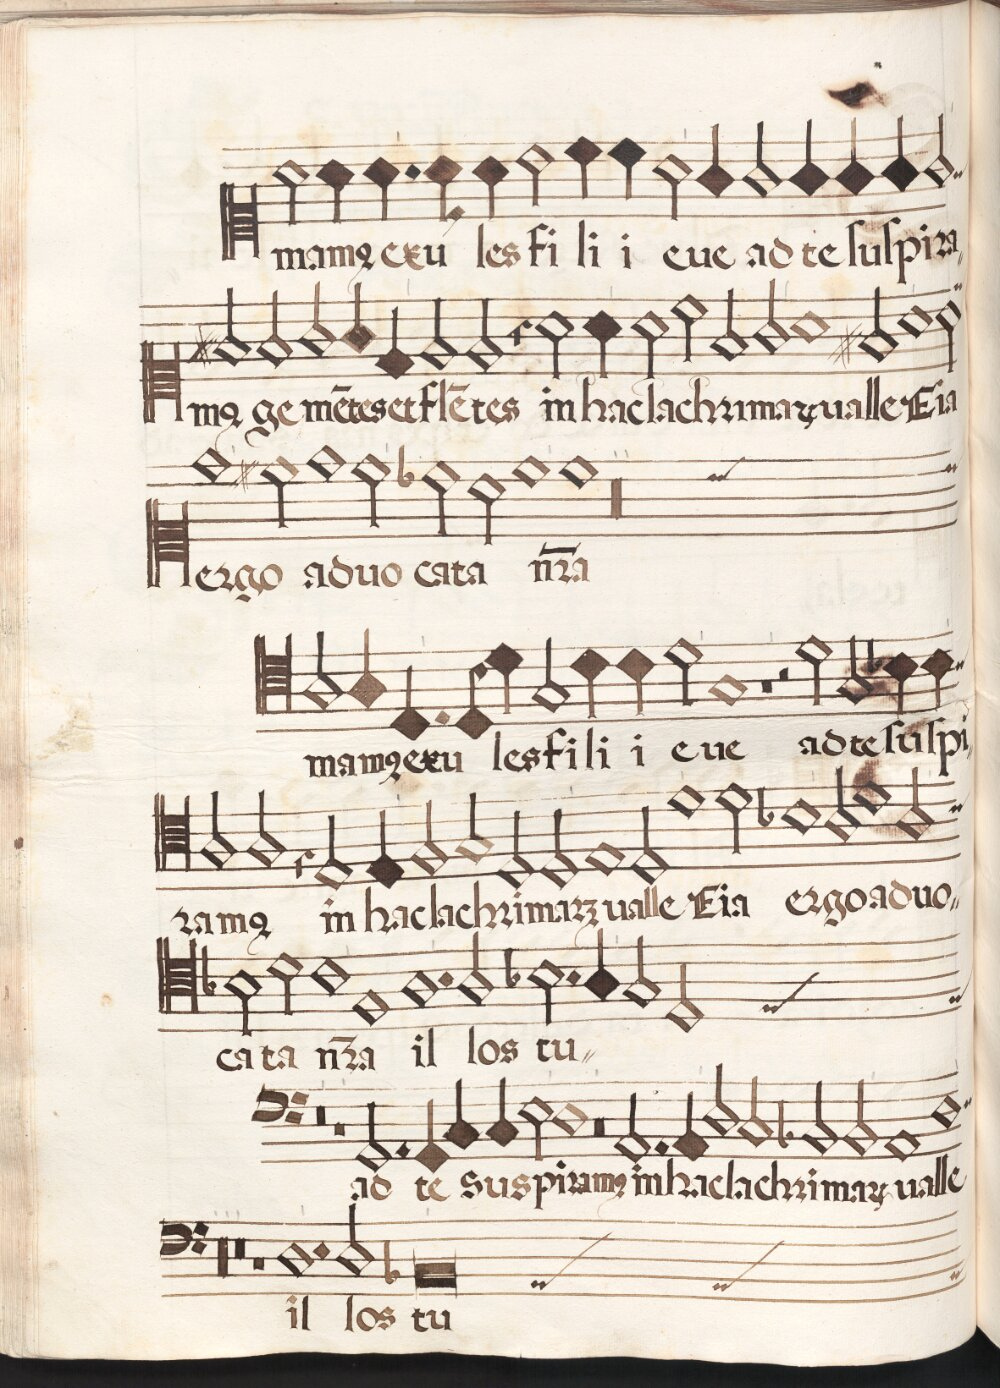 mamꝯ exu les fi li i eue ad te suspira,,
mꝯ ge mētes et flētes in hac lachrimaꝝ ualle Eia
ergo aduo cata nr̄a
mamꝯ exu les fi li i eue ad te suspi,
ramꝯ in hac lachrimaꝝ ualle Eia ergo aduo,,
cata nr̄a il los tu,,
ad te suspiramꝯ in hac lachrimaꝝ ualle
il los tu